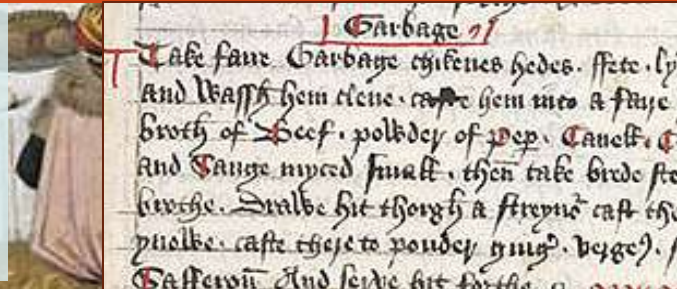 Garbage
Take faire Garbage chikenes hedes. ffete. ly
And Wassh hem clene. caste hem into a faire
broth of Beef. powder of Pep. Canell. C
and Sauge myced smale. then take brede ste
brothe. Drawe hit thorgh a streyno cast the
ynowe. caste there to pouder ging. verge
Safferon And serve hit forthe